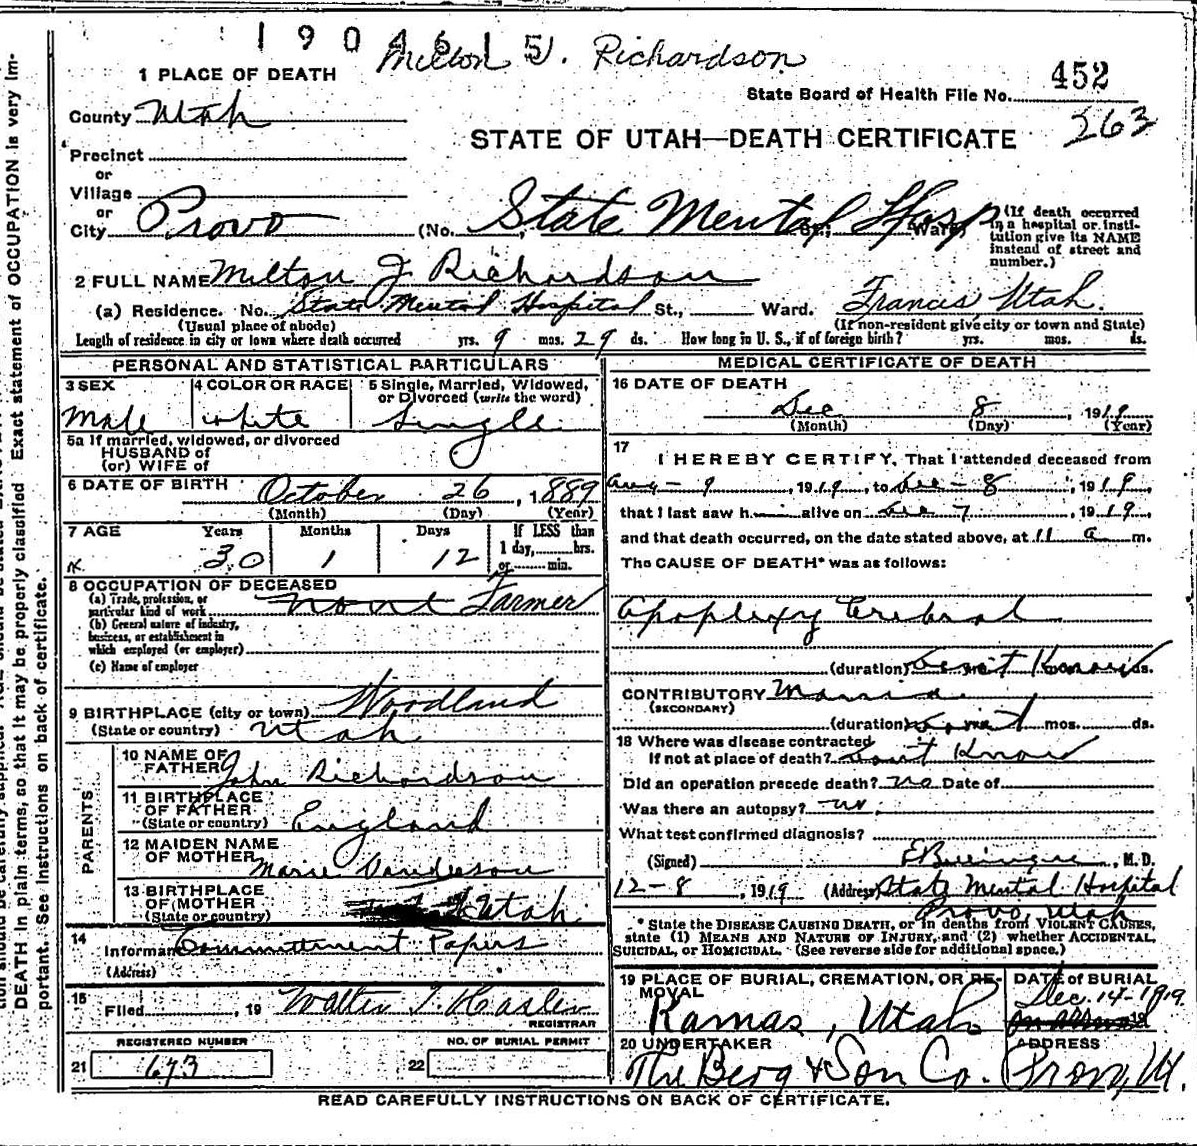 1904615
Milton J. Richardson
452
State Board of Health File No.
263
1 PLACE OF DEATH
County Utah
STATE OF UTAH—DEATH CERTIFICATE
Precinct
or
Village
or
City Provo (No. State Mental Hosp St.; Ward)
(If death occurred in a hospital or institution give its NAME instead of street and number.)
2 FULL NAME Milton J Richardson
(a) Residence. No. State Mental Hospital St., Ward. Francis, Utah.
(Usual place of abode) (If non-resident give city or town and State)
Length of residence in city or town where death occurred yrs. 9 mos. 29 ds. How long in U. S., if of foreign birth? yrs. mos. ds.
PERSONAL AND STATISTICAL PARTICULARS
3 SEX
Male
4 COLOR OR RACE
white
5 Single, Married, Widowed, or Divorced (write the word)
Single
5a If married, widowed, or divorced
HUSBAND of
(or) WIFE of
6 DATE OF BIRTH October 26, 1889
(Month) (Day) (Year)
7 AGE Years Months Days If LESS than
1 day, hrs.
or min.
30 1 12
8 OCCUPATION OF DECEASED
(a) Trade, profession, or
particular kind of work Farmer
(b) General nature of industry,
business, or establishment in
which employed (or employer)
(c) Name of employer
9 BIRTHPLACE (city or town) Woodland
(State or country) Utah
PARENTS
10 NAME OF
FATHER John Richardson
11 BIRTHPLACE
OF FATHER
(State or country) England
12 MAIDEN NAME
OF MOTHER Marie
13 BIRTHPLACE
OF MOTHER
(State or country) Utah
14 Informant Commitment Papers
(Address)
15
Filed , 19 Walter T. Hasler
REGISTRAR
REGISTERED NUMBER
21 673
NO. OF BURIAL PERMIT
22
MEDICAL CERTIFICATE OF DEATH
16 DATE OF DEATH
Dec 8, 1919
(Month) (Day) (Year)
17
I HEREBY CERTIFY, That I attended deceased from
Aug - 9, 1919, to Dec - 8, 1919,
that I last saw h alive on Dec 7, 1919,
and that death occurred, on the date stated above, at 11 a m.
The CAUSE OF DEATH* was as follows:
Apoplexy Cerebral
(duration) ds.
CONTRIBUTORY Mania
(SECONDARY)
(duration) mos. ds.
18 Where was disease contracted
If not at place of death? Dont Know
Did an operation precede death? no Date of
Was there an autopsy? no
What test confirmed diagnosis?
(Signed) , M. D.
12-8, 1919 (Address) State Mental Hospital
Provo, Utah
* State the DISEASE CAUSING DEATH, or in deaths from VIOLENT CAUSES,
state (1) MEANS AND NATURE OF INJURY, and (2) whether ACCIDENTAL,
SUICIDAL, or HOMICIDAL. (See reverse side for additional space.)
19 PLACE OF BURIAL, CREMATION, OR REMOVAL
Kamas, Utah
DATE of BURIAL
Dec. 14-1919
20 UNDERTAKER
The Berg & Son Co.
ADDRESS
Provo, Ut.
READ CAREFULLY INSTRUCTIONS ON BACK OF CERTIFICATE.
DEATH in plain terms, so that it may be properly classified. Exact statement of OCCUPATION is very Im-
portant. See instructions on back of certificate.